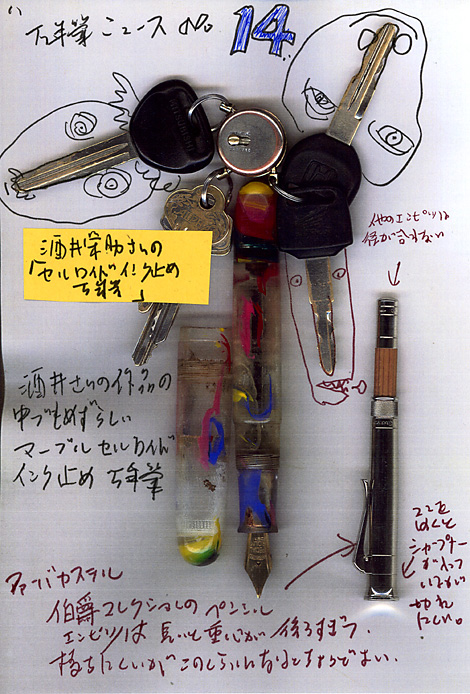 万年筆ニュース No. 14
酒井栄助さんの
「セルロイドインク止め
万年筆
」
他のエンピツは
径が合わない
酒井さんの作品の
中でもめずらしい
マーブルセルロイド
インク止め 万年筆
ここを
ぬくと
シャープナー
が入って
いるが
切れ
にくい。
ファバカステル
伯爵コレクションの ペンシル
エンピツは 長いと重心が 後ろすぎて.
持ちにくいがこのくらいになるとちょうど